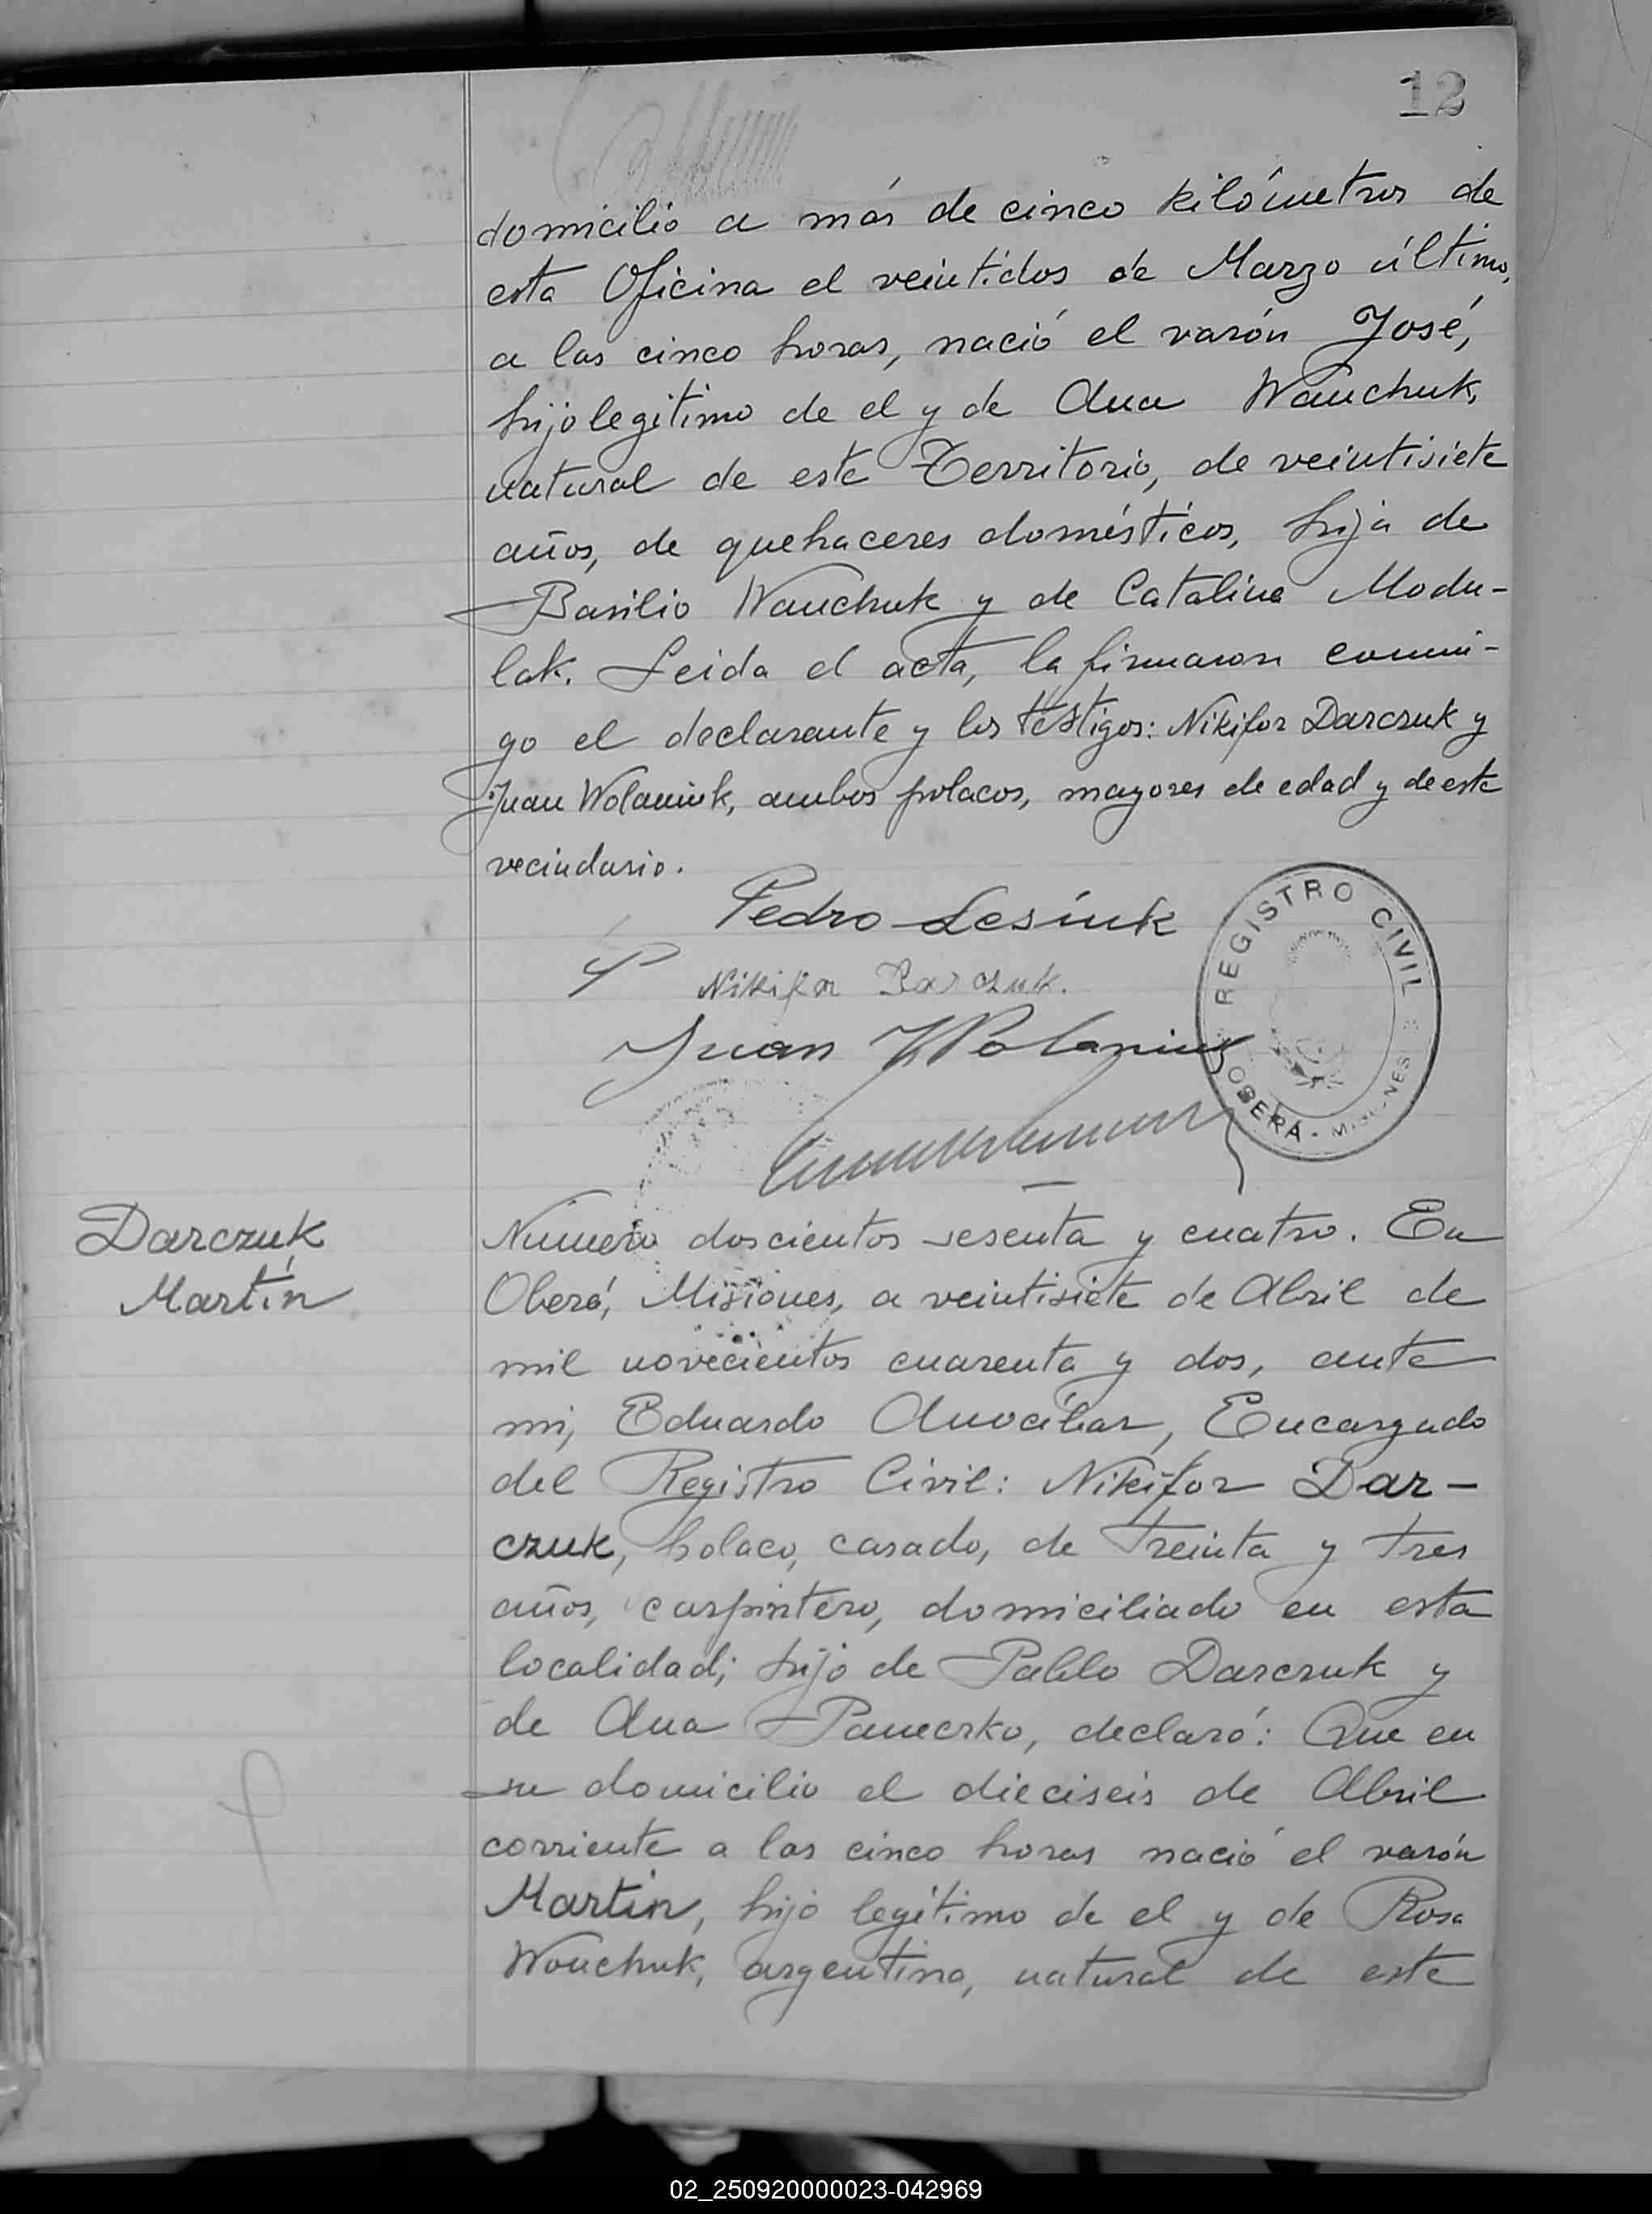 12
domicilio a más de cinco kilómetros de
esta Oficina el veintidos de Marzo último,
a las cinco horas, nació el varón José,
hijo legítimo de el y de Ana Wauchuk,
natural de este Territorio, de veintisiete
años, de quehaceres domésticos, hija de
Basilio Wauchuk y de Catalina Modu-
lak. Leida el acta, la firmaron conmi-
go el declarante y los testigos: Nikifor Darczuk y
Juan Wolaniuk, ambos polacos, mayores de edad y de este
vecindario.
Pedro Lesiuk
Nikifor Darczuk.
Juan Wolaniuk
REGISTRO CIVIL
OBERÁ - MISIONES
Darczuk
Martín
Número doscientos sesenta y cuatro. En
Oberá, Misiones, a veintisiete de Abril de
mil novecientos cuarenta y dos, ante
mi, Eduardo Anocíbar, Encargado
del Registro Civil: Nikifor Dar-
czuk, polaco, casado, de treinta y tres
años, carpintero, domiciliado en esta
localidad; hijo de Pablo Darczuk y
de Ana Paneczko, declaró: Que en
su domicilio el dieciseis de Abril
corriente a las cinco horas nació el varón
Martin, hijo legítimo de el y de Rosa
Wouchuk, argentina, natural de este
02_250920000023-042969